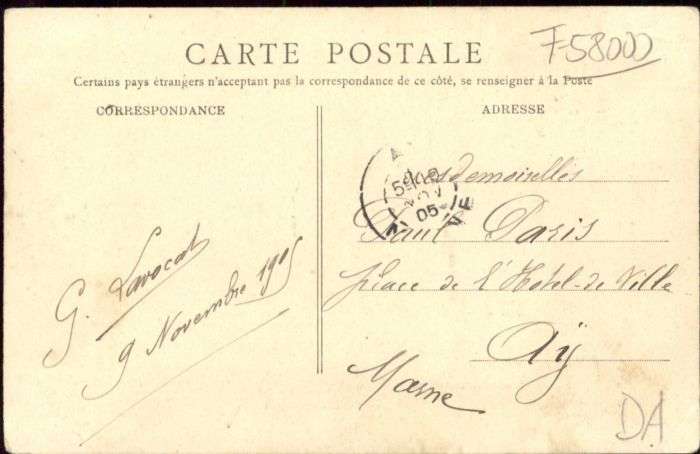 CARTE POSTALE
F-58000
Certains pays étrangers n'acceptant pas la correspondance de ce côté, se renseigner à la Poste
CORRESPONDANCE
G. Lavocat
9 Novembre 1905
ADRESSE
NOV
05
Mesdemoiselles
Paul Paris
place de l'Hôtel-de Ville
Aÿ
Marne
DA